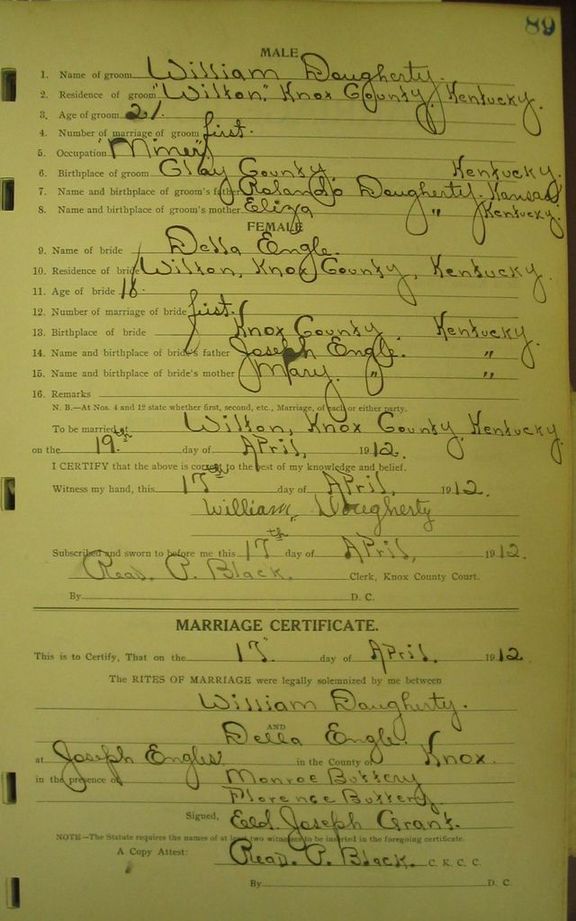 89
MALE
1. Name of groom William Daugherty.
2. Residence of groom "Wilton," Knox County, Kentucky.
3. Age of groom 21.
4. Number of marriage of groom first.
5. Occupation Miner
6. Birthplace of groom Clay County, Kentucky.
7. Name and birthplace of groom's father Daugherty. Kansas
8. Name and birthplace of groom's mother Eliza " Kentucky.
FEMALE
9. Name of bride Della Engle.
10. Residence of bride Wilton, Knox County, Kentucky.
11. Age of bride 18.
12. Number of marriage of bride first.
13. Birthplace of bride Knox County Kentucky.
14. Name and birthplace of bride's father Joseph Engle. "
15. Name and birthplace of bride's mother Mary. " "
16. Remarks
N. B.—At Nos. 4 and 12 state whether first, second, etc., Marriage, of each or either party.
To be married at Wilton, Knox County, Kentucky.
on the 19th day of April, 1912.
I CERTIFY that the above is correct to the best of my knowledge and belief.
Witness my hand, this 17th day of April, 1912.
William Daugherty
Subscribed and sworn to before me this 17th day of April, 1912.
Read. P. Black. Clerk, Knox County Court.
By D. C.
MARRIAGE CERTIFICATE.
This is to Certify, That on the day of April. 1912.
The RITES OF MARRIAGE were legally solemnized by me between
William Daugherty.
AND
Della Engle.
at Joseph Engles in the County of Knox.
in the presence of Monroe Buttery
Florence Buttery
Signed, Eld. Joseph Grant.
NOTE—The Statute requires the names of at least two witnesses to be inserted in the foregoing certificate.
A Copy Attest: Read. P. Black. C. K. C. C.
By D. C.